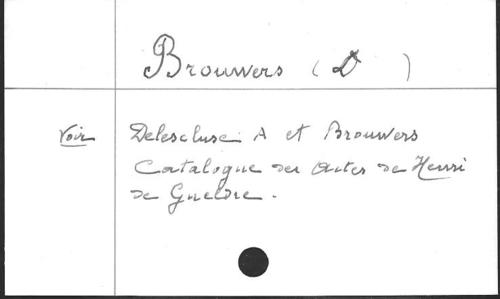 Brouwers (D)
Voir Delescluse A et Brouwers
Catalogue des Actes de Henri
de Gueldre.